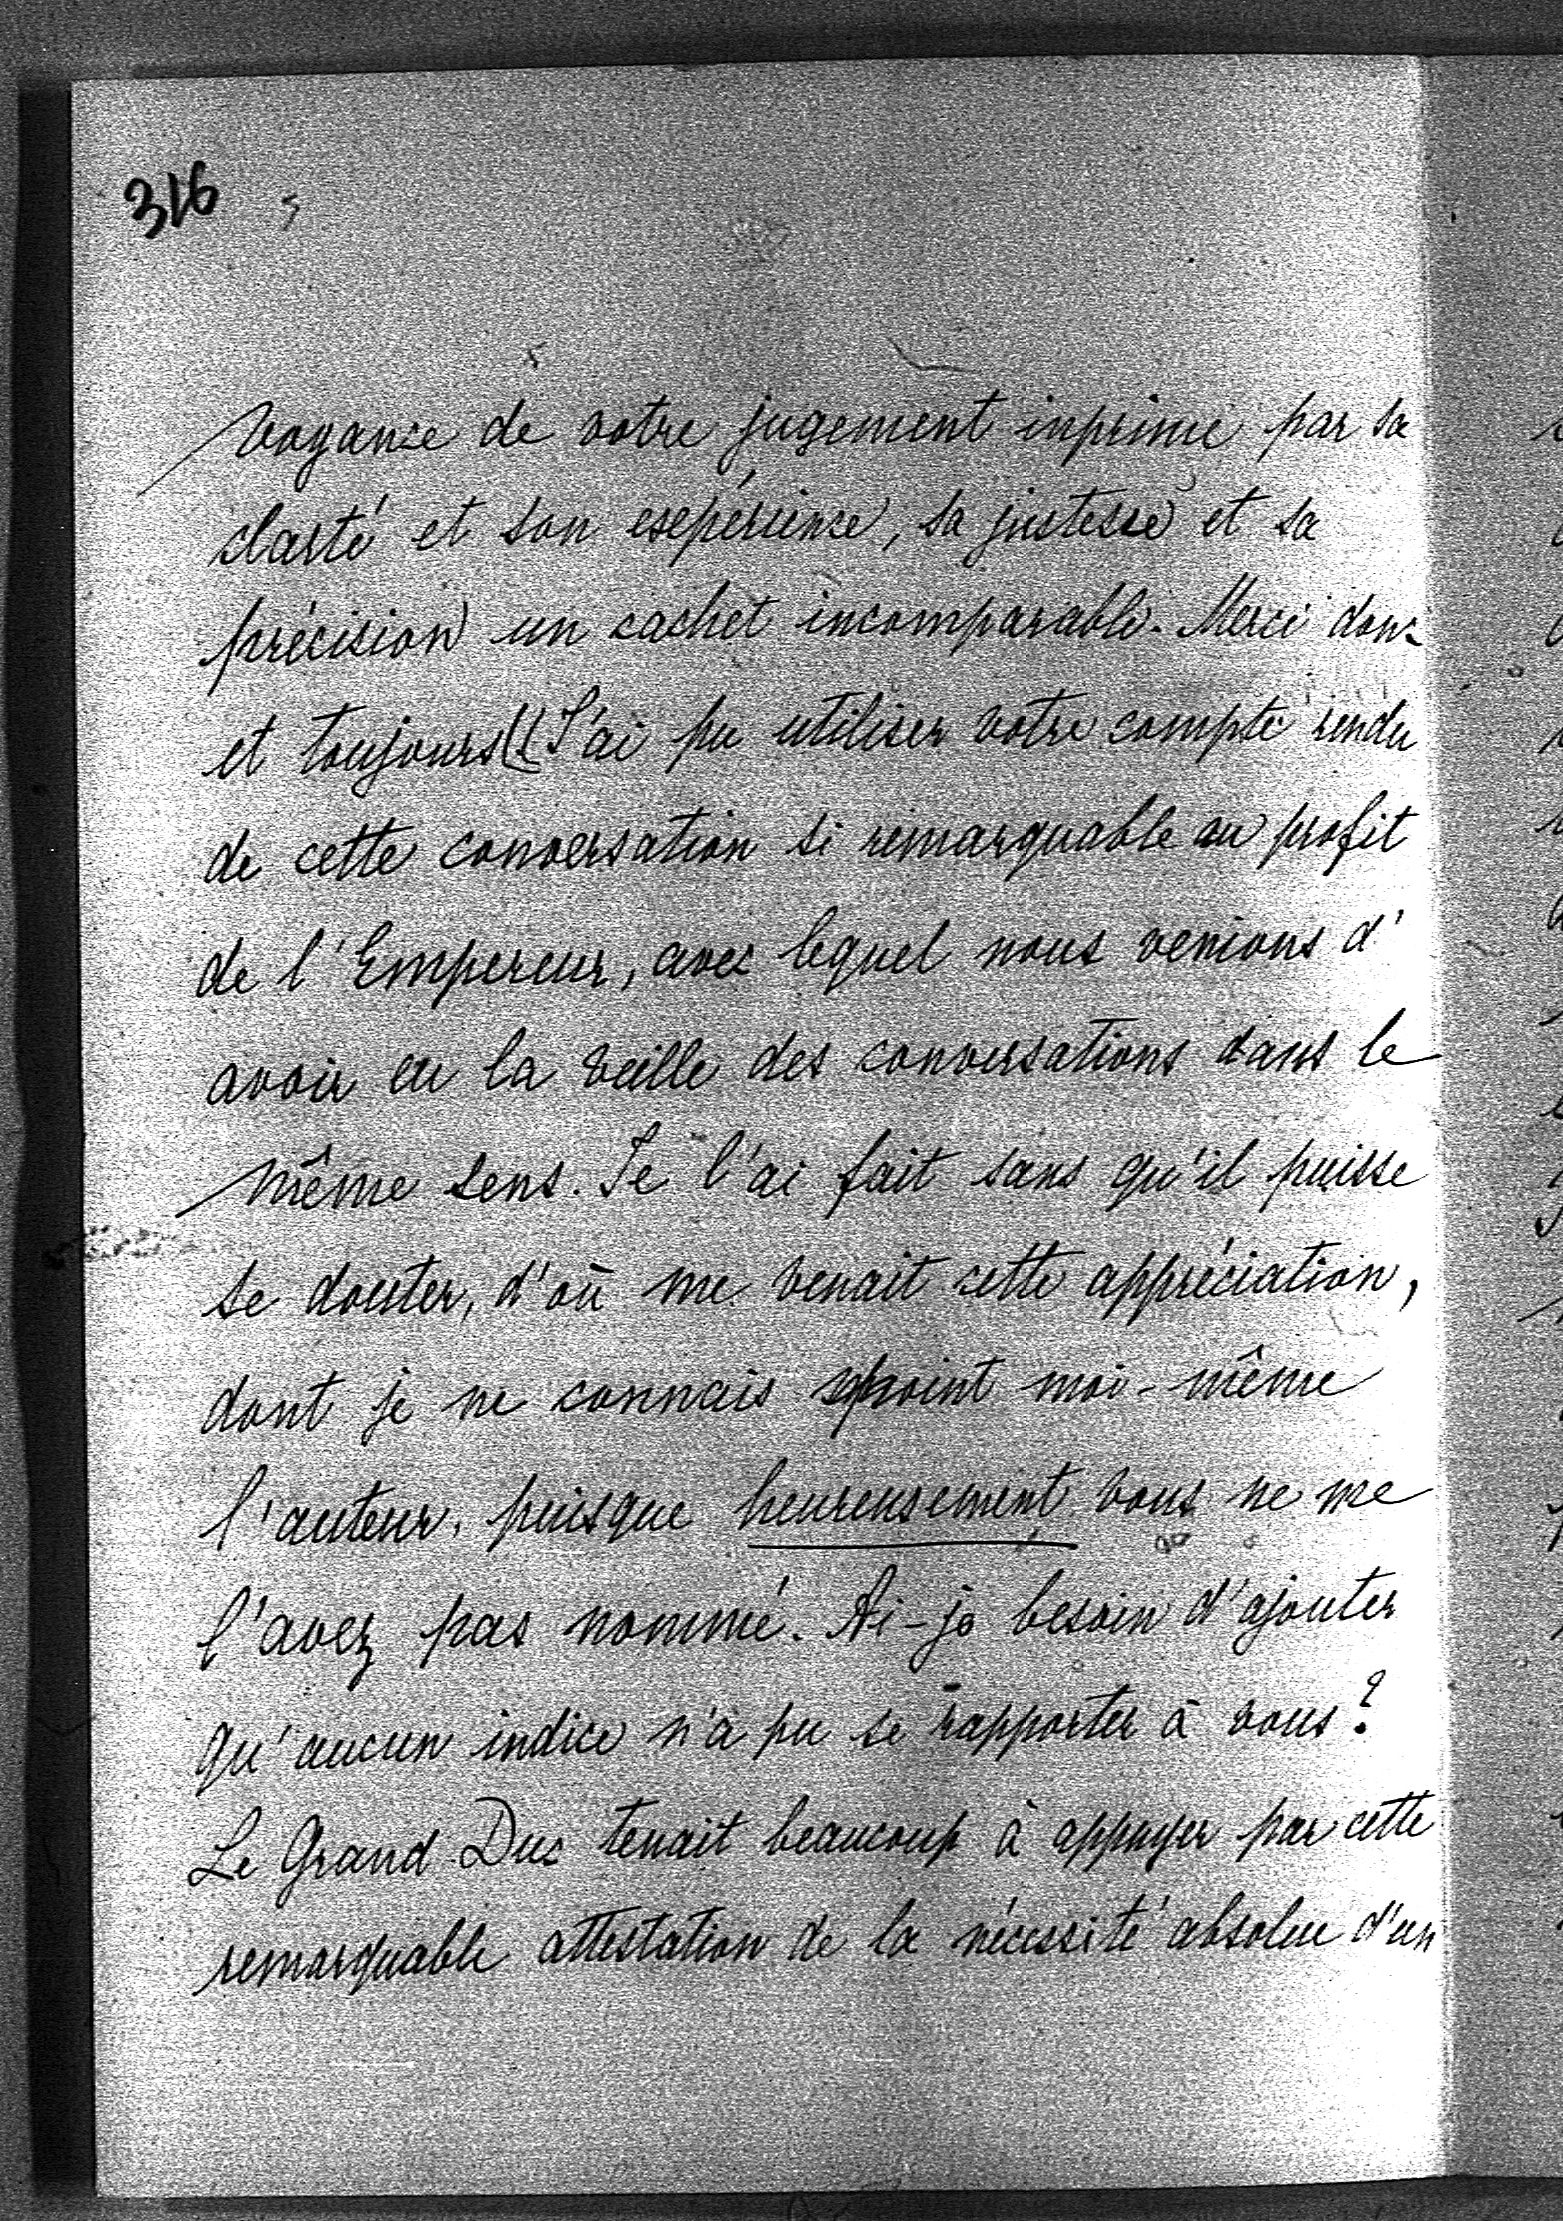 316
voyance de votre jugement inprime par sa
clarté et son esepérience, sa justesse et sa
précision un cachet incomparable. Merci donc
et toujours!! J'ai pu utiliser votre compte rendu
de cette conversation si remarquable au profit
de l'Empereur, avec lequel nous venions d'
avoir eu la veille des conversations dans le
même sens. Je l'ai fait sans qu'il puisse
se douter, d'où me venait cette appréciation,
dont je ne connais point moi-même
l'auteur, puisque heureusement vous ne me
l'avez pas nommé. Ai-je besoin d'ajouter
qu'aucun indice n'a pu se rapporter à vous?
Le Grand Duc tenait beaucoup à appuyer par cette
remarquable attestation de la nécessité absolue d'un